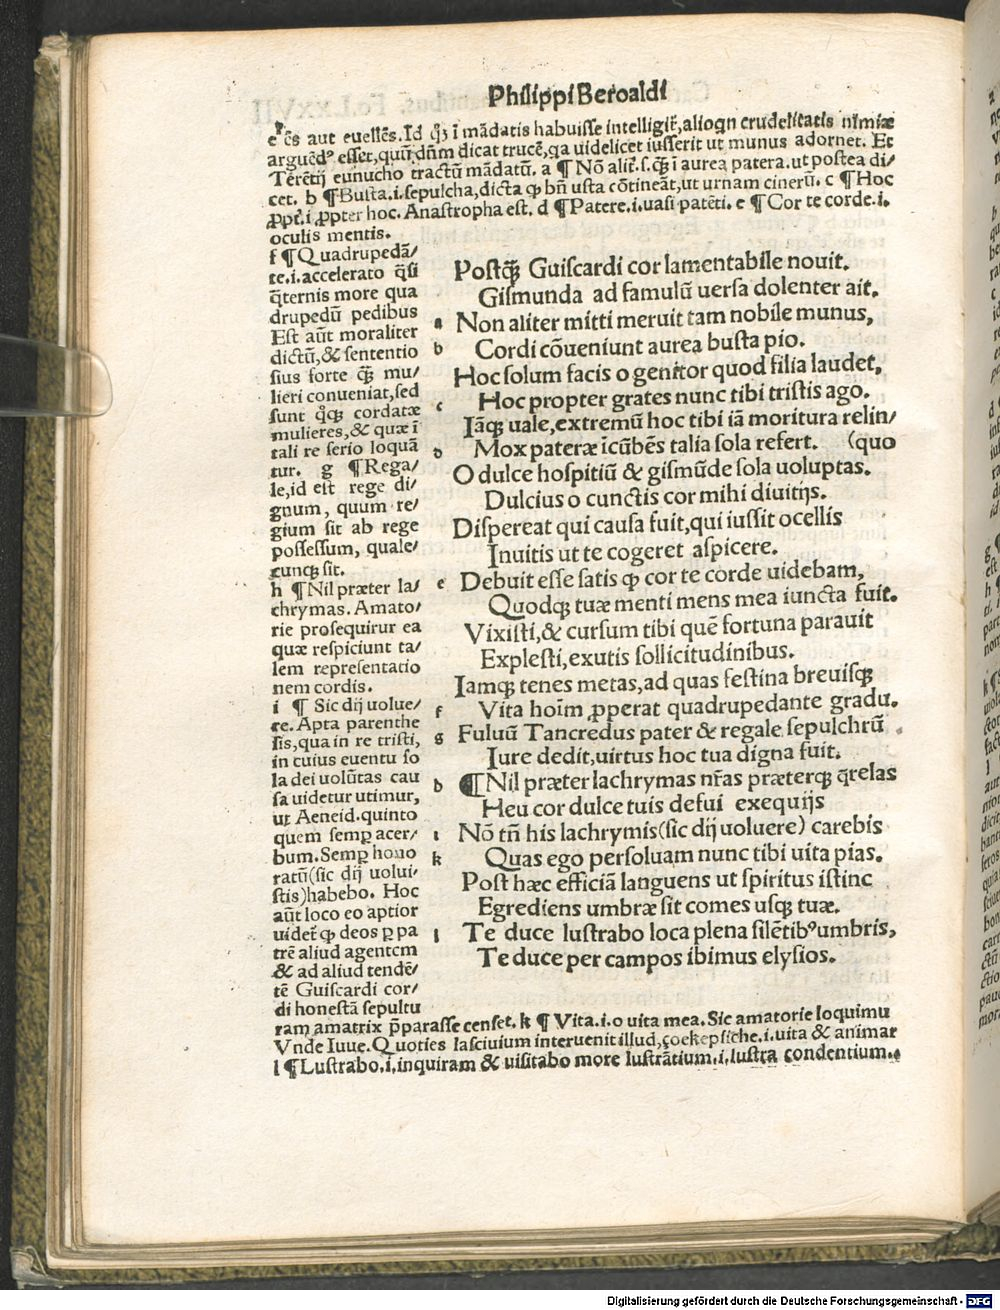 Philippi Beroaldi
c̃s aut euellēs. Id q̃ ī mādatis habuisse intelligit̃, alioqn crudelitatis nimiæ
arguēdꝰ esset, quũ dñm dicat trucē, qa uidelicet iusserit ut munus adornet. Et
Terētij eunucho tractũ mādatũ. a ¶ Nō alit̃. s. q̃ꝫ ī aurea patera. ut postea di/
cet. b ¶ Busta. i. sepulcha, dicta ꝙ bñ usta cōtineāt, ut urnam cinerũ. c ¶ Hoc
ꝓpt̃. i ꝓpter hoc. Anastropha est. d ¶ Patere. i. uasi patēti. e ¶ Cor te corde. i.
oculis mentis.
f ¶ Quadrupedā/
te. i. accelerato q̃si
q̃ternis more qua
drupedũ pedibus
Est aũt moraliter
dictũ, & sententio
sius forte q̃ꝫ mu/
lieri conueniat, sed
sunt q̊qꝫ cordatæ
mulieres, & quæ ī
tali re serio loquã
tur. g ¶ Rega/
le, id est rege di/
gnum, quum re/
gium sit ab rege
possessum, quale/
cunqꝫ sit.
h ¶ Nil præter la/
chrymas. Amato/
rie prosequirur ea
quæ respiciunt ta/
lem representatio
nem cordis.
i ¶ Sic dij uolue/
re. Apta parenthe
sis, qua in re tristi,
in cuius euentu so
la dei uolũtas cau
sa uidetur utimur,
ut Aeneid. quinto
quem semꝑ acer/
bum. Semꝑ hono
ratũ (sic dij uolui/
stis) habebo. Hoc
aũt loco eo aptior
uidet̃ ꝙ deos ꝑ pa
trē aliud agentem
& ad aliud tendē/
tē Guiscardi cor/
di honestā sepultu
ram amatrix p̃parasse censet. k ¶ Vita. i. o uita mea. Sic amatorie loquimu
Vnde Iuue. Quoties lasciuium interuenit illud, çoekepsiche. i. uita & animar
l ¶ Lustrabo. i. inquiram & uisitabo more lustrātium. i. lustra condentium.
Postq̃ꝫ Guiscardi cor lamentabile nouit.
Gismunda ad famulũ uersa dolenter ait.
a Non aliter mitti meruit tam nobile munus,
b Cordi cōueniunt aurea busta pio.
Hoc solum facis o genitor quod filia laudet,
c Hoc propter grates nunc tibi tristis ago.
Iāqꝫ uale, extremũ hoc tibi iā moritura relin/
d Mox pateræ īcũbēs talia sola refert. (quo
O dulce hospitiũ & gismũde sola uoluptas.
Dulcius o cunctis cor mihi diuitijs.
Dispereat qui causa fuit, qui iussit ocellis
Inuitis ut te cogeret aspicere.
e Debuit esse satis ꝙ cor te corde uidebam,
Quodqꝫ tuæ menti mens mea iuncta fuit.
Vixisti, & cursum tibi quē fortuna parauit
Explesti, exutis sollicitudinibus.
Iamqꝫ tenes metas, ad quas festina breuisqꝫ
f Vita hoīm ꝓperat quadrupedante gradu.
g Fuluũ Tancredus pater & regale sepulchrũ
Iure dedit, uirtus hoc tua digna fuit.
h ¶ Nil præter lachrymas nr̃as præterqꝫ q̃relas
Heu cor dulce tuis defui exequijs
i Nō tñ his lachrymis (sic dij uoluere) carebis
k Quas ego persoluam nunc tibi uita pias.
Post hæc efficiā languens ut spiritus istinc
Egrediens umbræ sit comes usqꝫ tuæ.
l Te duce lustrabo loca plena silētibꝰ umbris,
Te duce per campos ibimus elysios.
Digitalisierung gefördert durch die Deutsche Forschungsgemeinschaft - DFG